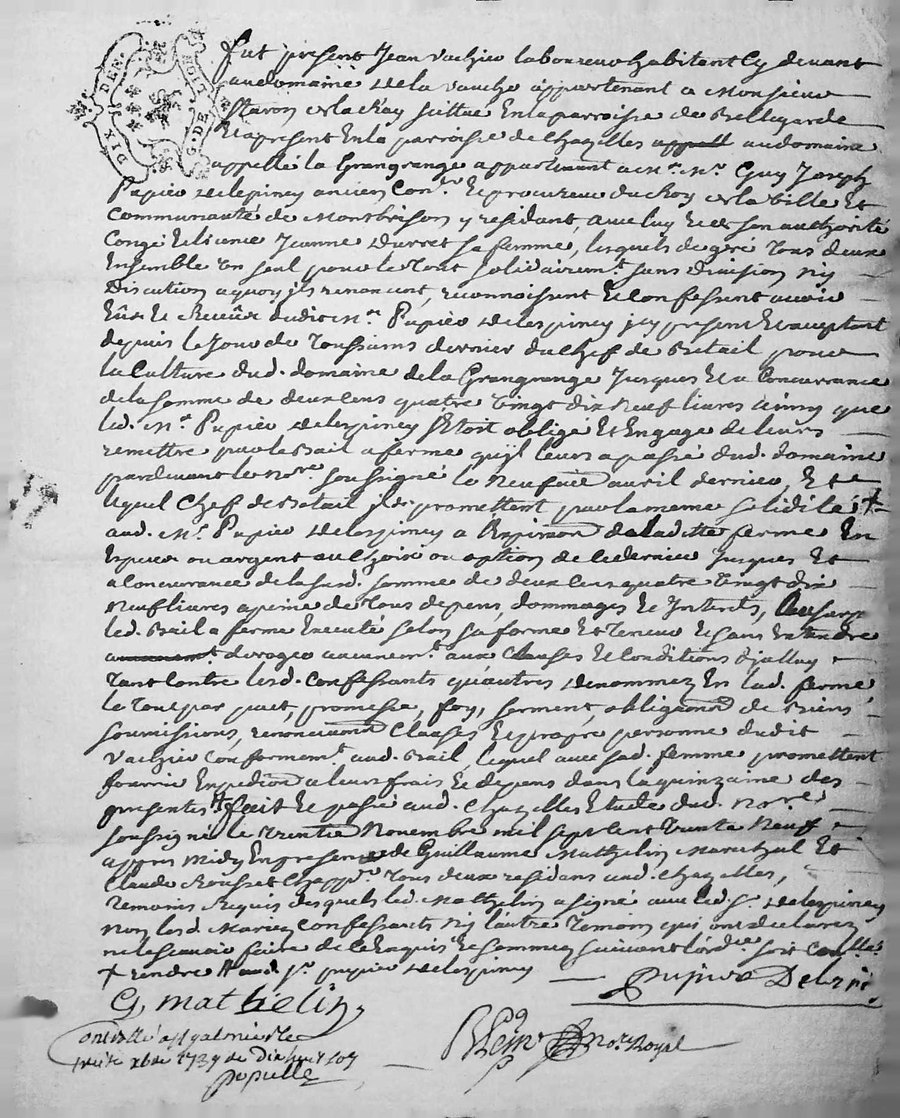 DIX DEN.
G. DE LION
fut présent Jean vachier laboureur habitant cy devant
au domaine de la vauche appartenant a Monsieur
Staron de la Ray scittué En la parroisse de Bellegarde
Et a présent En la parroisse de Chazelles au domaine
appellé la Grangrange appartenant a Mr. Mr. Guy Joseph
Papier delespiney ancien Conr. Et procureur du Roy de la ville Et
Communauté de Montbrison y residant, avec luy et de son authorité
Congé Et licence Jeanne Durret sa femme, lesquels de gré tous deux
Ensemble un seul pour le tout solidairemt. sans division ny
Discution a quoy ils renoncent, reconnoissent Et Confessent avoir
Eû Et Receûs dudit Mr. Papier delespiney icy present Et acceptant
depuis le jour de Toussaints dernier du chef de Bétail pour
la Culture dud. domaine de la Grangrange Jusques Et a Concurrance
de la somme de deux cens quatre vingt dix Neuf livres ainsy que
led. Mr. Papier delespiney s'Etoit obligé Et Engagé de leurs
remettre par le Bail a ferme qu'il leurs a passé dud. domaine
pardevant le nore. soussigné le Neufvie avril dernier, Et
lequel Chef de Bétail ils promettent par la meme solidité +
aud. Mr. Papier delespiney a l'Expiraon de laditte ferme En
Espece ou argent au Choix ou option de ce dernier Jusques Et
a Concurrance de la susd. somme de deux cens quatre vingt dix
Neuf livres a peine de tous depens, dommages Et Interets,
led. Bail a ferme Executé selon sa forme Et teneur Et sans Entendre
deroger aucunemt. aux Clauses Et Conditions d'jcelluy
tant Contre lesd. Confessants qu'autres denommez En lad. ferme
le tout par pact, promesse, foy, serment, obligaon de Biens
soumissions, renonciaon Clauses Et propre personne dudit
Vachier Conformemt. aud. Bail, lequel avec sad. femme promettent
fournir Expedion a leurs frais Et depens dans la quinzaine des
presentes # fait Et passé aud. Chazelles Etude dud. Nore.
soussigné le trentie Novembre mil sept cent trente Neuf
apprès midy En presence de Guillaume Mathelin Marechal Et
Claude Rousset Chappr. tous deux residans aud. Chazelles,
temoins Requis desquels led. Mathelin a signé avec led. Sr. delespiney
non lesd. Mariez Confessants ny l'autre temoin qui ont declarez
ne le scavoir faire de ce Enquis Et sommez suivant l'ordce. soit Conllé.
+ rendre # aud. Sr. papier delespiney
Papier Delespi
G, mathelin,
Controllé a St galmier le
xbe 1739
nore. Royal